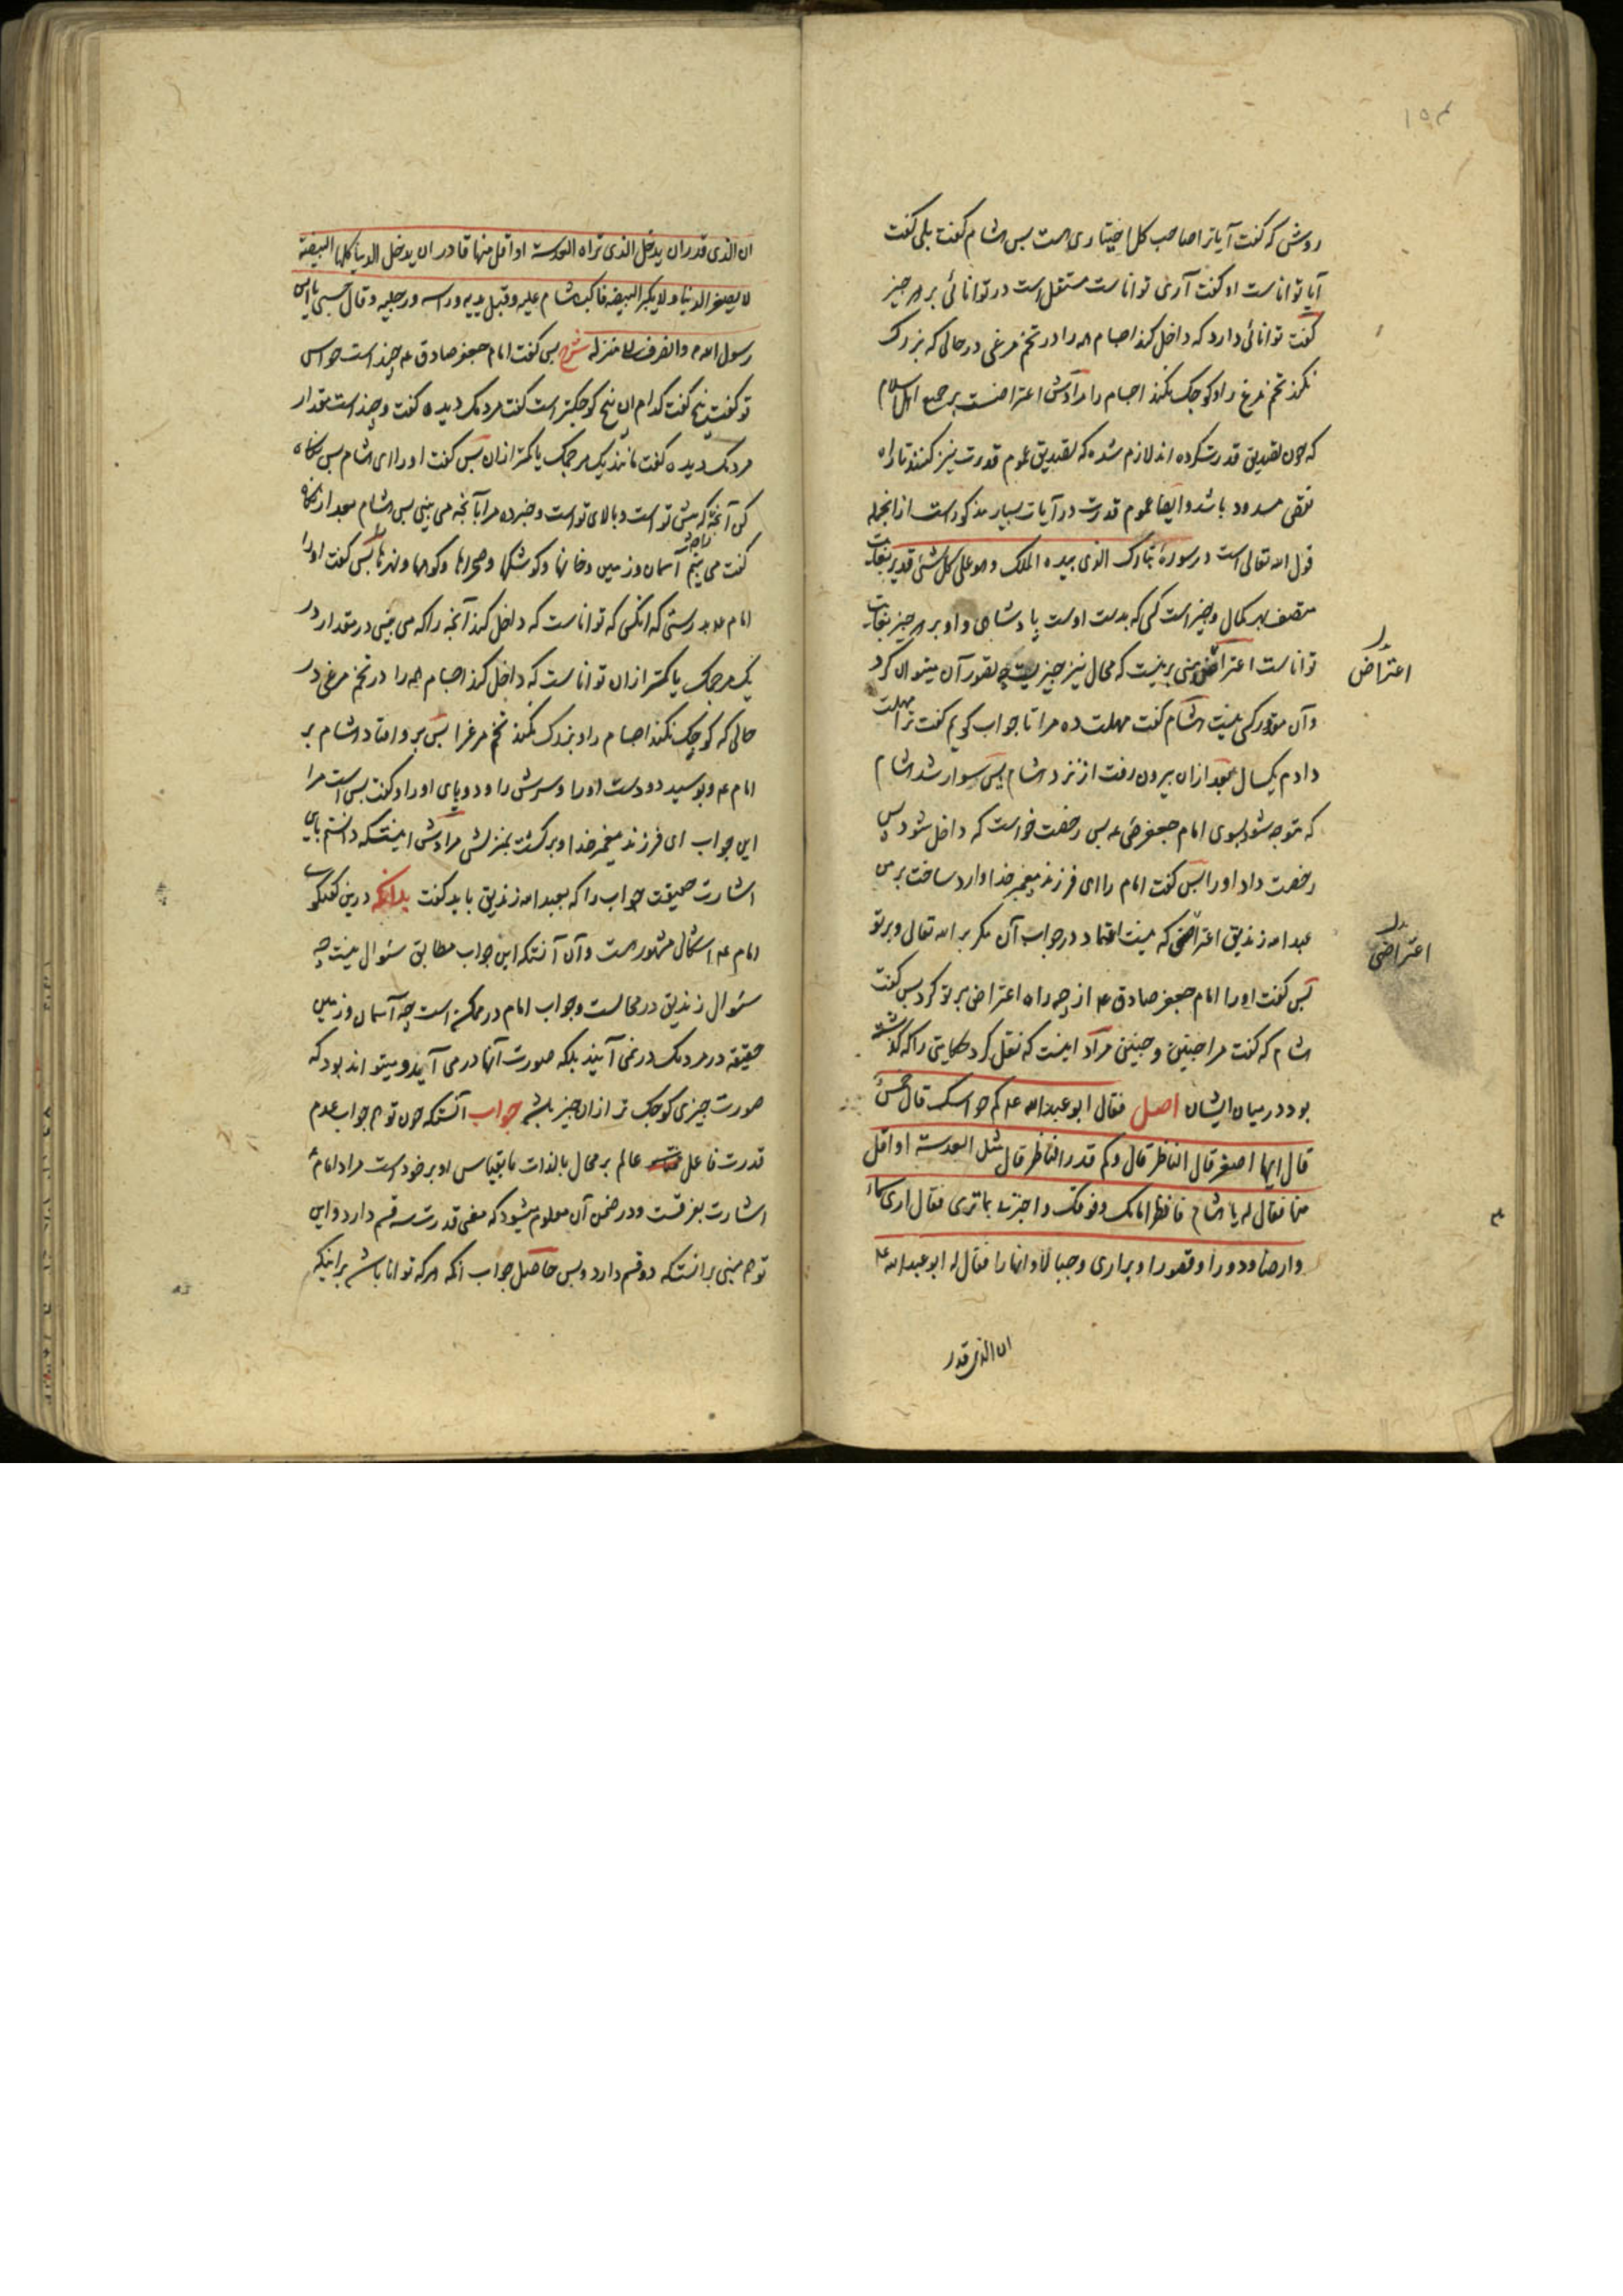 ۱۵۴
روشی که گفت آیا ترا صاحب کل اختیاری هست پس هشام گفت بلی گفت
آیا تواناست او گفت آری تواناست مستقل است در توانائی بر هر چیز
گفت توانائی دارد که داخل کند اجسام همه را در تخم مرغی در حالی که بزرگ
نکند تخم مرغ را و کوچک نکند اجسام را مرادش اعتراضست بر جمیع اهل اسلام
که چون تصدیق قدرت کرده اند لازم شده که تصدیق عموم قدرت نیز کنند تا راه
نقض مسدود باشد و ایضا عموم قدرت در آیات بسیار مذکور است از انجمله
قول الله تعالی است در سورهٔ تبارک الذی بیده الملک و هو علی کل شیٔ قدیر بغایت
متصف بهر کمال و خیر است کسی که بدست اوست پادشاهی و او بر هر چیز بغایت
تواناست اعتراض مبنی برینست که محال نیز چیزیست چه تصور آن میتوان کرد
و آن مقدور کسی نیست هشام گفت مهلت ده مرا تا جواب گویم گفت ترا مهلت
دادم یکسال بعد ازان بیرون رفت از نزد هشام پس سوار شد هشام
که متوجه شود بسوی امام جعفر ع پس رخصت خواست که داخل شود پس
رخصت داد او را پس گفت امام را ای فرزند پیغمبر خدا وارد ساخت بر من
عبدالله زندیق اعتراضی که نیست اعتماد در جواب آن مگر بر الله تعالی و بر تو
پس گفت او را امام جعفر صادق ع از چه راه اعتراض بر تو کرد پس گفت
هشام که گفت مرا چنین و چنین مراد اینست که نقل کرد حکایتی را که گذشته
بود در میان ایشان اصل فقال ابو عبدالله ع کم حواسک قال خمس
قال ایها اصغر قال الناظر قال و کم قدر الناظر قال مثل العدسة او اقل
منها فقال له یا هشام فانظر امامک و فوقک و اخبرنی بما تری فقال اری سماء
و ارضا و دورا و قصورا و براری و جبالا و انهارا فقال له ابو عبدالله ع
ان الذی قدر
اعتراض
اعتراضی
ان الذی قدر ان یدخل الذی تراه العدسة او اقل منها قادر ان یدخل الدنیا کلها البیضة
لا یصغر الدنیا و لا یکبر البیضة فاکب هشام علیه و قبل یدیه و راسه و رجلیه و قال حسبی یا ابن
رسول الله و انصرف الی منزله شرح پس گفت امام جعفر صادق ع چند است حواس
تو گفت پنج گفت کدام ان پنج کوچکتر است گفت مردمک دیده گفت و چند است مقدار
مردمک دیده گفت مانند یک مرجمک یا کمتر ازان پس گفت او را ای هشام پس نگاه
کن آنچه که پیش تو است و بالای تو است و خبر ده مرا بآنچه می بینی پس هشام بعد از نگاه
گفت می بینم آسمان و زمین و خانها و کوشکها و صحراها و کوهها و نهرها پس گفت او را
امام ع بدرستی که انکسی که تواناست که داخل کند آنچه را که می بینی در مقدار
یک مرجمک یا کمتر ازان تواناست که داخل کند اجسام همه را در تخم مرغی در
حالی که کوچک نکند اجسام را و بزرگ نکند تخم مرغ را پس بر و افتاد هشام بر
امام ع و بوسید دو دست او را و سرش را و دو پای او را و گفت بس است مرا
این جواب ای فرزند پیغمبر خدا و برگشت بمنزلش مرادش اینست که دانستم باین
اشارت حقیقت جواب را که بعبدالله زندیق باید گفت بدانکه درین گفتگوی
امام ع اشکال مشهور هست و آن آنستکه این جواب مطابق سئوال نیست چه
سئوال زندیق در محالست و جواب امام در ممکنه است چه آسمان و زمین
حقیقة در مردمک در نمی آیند بلکه صورت آنها در می آیند و میتواند بود که
صورت چیزی کوچک تر ازان چیز باشد جواب آنستکه چون توهم جواب عدم
قدرت فاعل عالم بر محال بالذات ما بقیاس او بر خود است مراد امام ع
اشارت بفرقست و در ضمن آن معلوم میشود که معنی قدرت سه قسم دارد و این
توهم مبنی بر انستکه دو قسم دارد و بس حاصل جواب انکه هر که توانا باشد بر اینکه